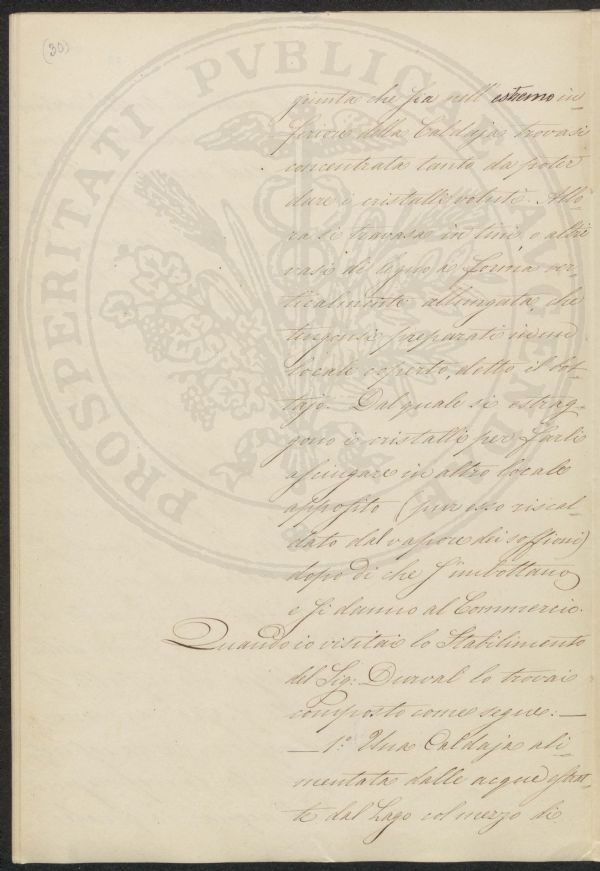 (30)
giunta che sia nell'estremo in-
feriore della Caldaja trovasi
concentrata tanto da poter
dare i cristalli voluti. Allo-
ra si travasa in tini, o altri
vasi di legno a forma ver-
ticalmente allungata, che
tengonsi preparati in un
locale coperto, detto il bot-
tajo. Dal quale si estrag-
gono i cristalli per farli
asciugare in altro locale
apposito (pur esso riscal-
dato dal vapore dei soffioni)
dopo di che s'imbottano
e si danno al Commercio.
Quando io visitai lo Stabilimento
del Sig: Durval lo trovai
composto come segue: —
— 1.° Una Caldaja ali-
mentata dalle acque estrat-
te dal Lago col mezzo di
PROSPERITATI PVBLICAE AVGENDAE